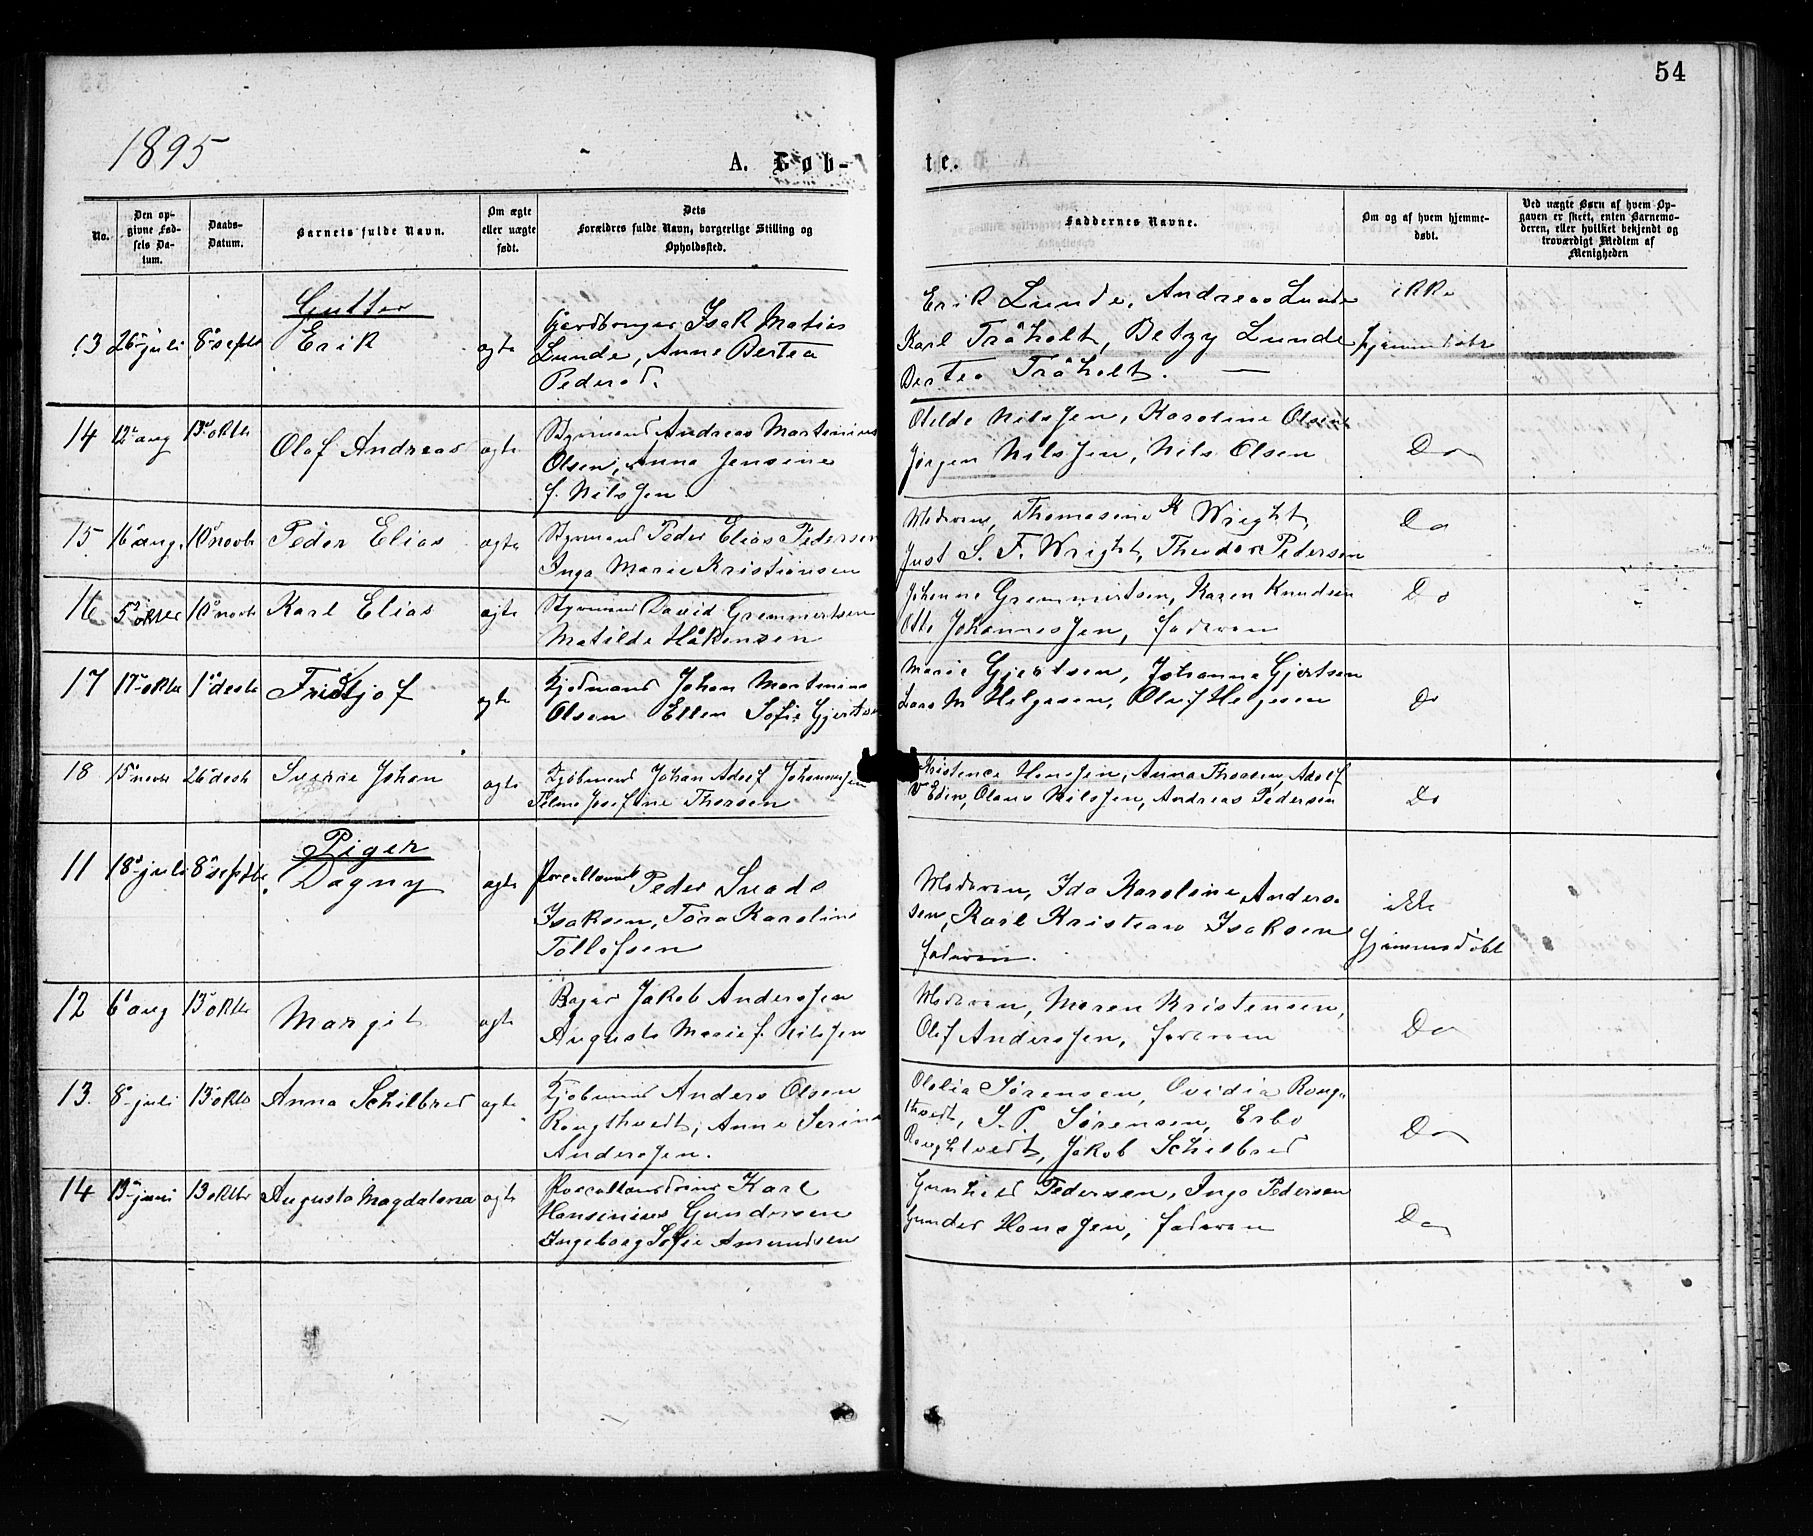 54
1895
A. Døb-
te.
No.
Den op-
givne Fød-
sels Da-
tum.
Daabs-
Datum.
Barnets fulde Navn.
Om ægte
eller uægte
født.
Dets
Forældres fulde Navn, borgerlige Stilling og
Opholdssted.
Faddernes Navne.
Om og af hvem hjemme-
døbt.
Ved uægte Børn af hvem Op-
gaven er skeet, enten Barnemo-
deren, eller hvilket bekjendt og
troværdigt Medlem af
Menigheden
Gutter
13 26 juli 8 septb Erik ægte Gardbruger Isak Matias
Lunde, Anne Bertea
Pedersd.
Erik Lunde, Andreas Lunde
Karl Tråholt, Betzy Lunde
Bertea Tråholt. —
ikke
hjemmedøbt
14 12 aug 13 oktb Olaf Andreas ægte Styrmand Andreas Martinius
Olsen, Anna Jensine
f. Nilssen.
Otelde Nilssen, Karoline Olsen
Jørgen Nilssen, Nils Olsen
Do
15 16 aug. 10 novb Peder Elias ægte Styrmand Peder Elias Pedersen
Inga Marie Kristiansen
Moderen, Thomasine K Wright,
Just S. F. Wright, Theodor Pedersen
Do
16 5 oktbr 10 novb Karl Elias ægte Styrmand David Gremmertsen
Matilde Håkensen
Johanne Gremmertsen, Karen Knudsen
Otto Johannessen, faderen
Do
17 17 oktb 1 desb Fridtjof ægte Kjødmand Johan Martinius
Olsen Ellen Sofie Gjertsen
Marie Gjertsen, Johanne Gjertsen
Lars M Helgesen, Oluf Helgesen
Do
18 15 novb 26 desb Sverre Johan ægte Kjøbmand Johan Adolf Johannssen
Josefine Thorsen
Kristence Hanssen, Anna Thorsen, Adolf
Edin, Olaus Nilssen, Andreas Pedersen
Do
Piger
11 18 juli 8 septbr. Dagny ægte Peder Suads
Isaksen, Tora Karoline
Tollefsen
Moderen, Ida Karoline Anders-
sen, Karl Kristian Isaksen
faderen.
ikke
hjemmedøbt
12 6 aug 13 oktb Margit ægte Bager Jakob Anderssen
Augusta Marie f. Nilssen
Moderen, Maren Kristensen,
Olaf Anderssen, faderen
Do
13. 8 juli 13 oktb Anna Schilbred ægte Kjøbmand Anders Olsen
Rougthvedt, Anne Serine
Anderssen.
Olalia Sørensen, Ovidia Roug-
thvedt, S. P. Sørensen, Erbo
Roughtvedt, Jakob Schilbred
Do
14 13 juni 13 oktbr Augusta Magdalena ægte Karl
Hansinius Gundersen
Ingeborg Sofie Amundsen
Gunhild Pedersen, Inga Pedersen
Gunder Hanssen, faderen
Do